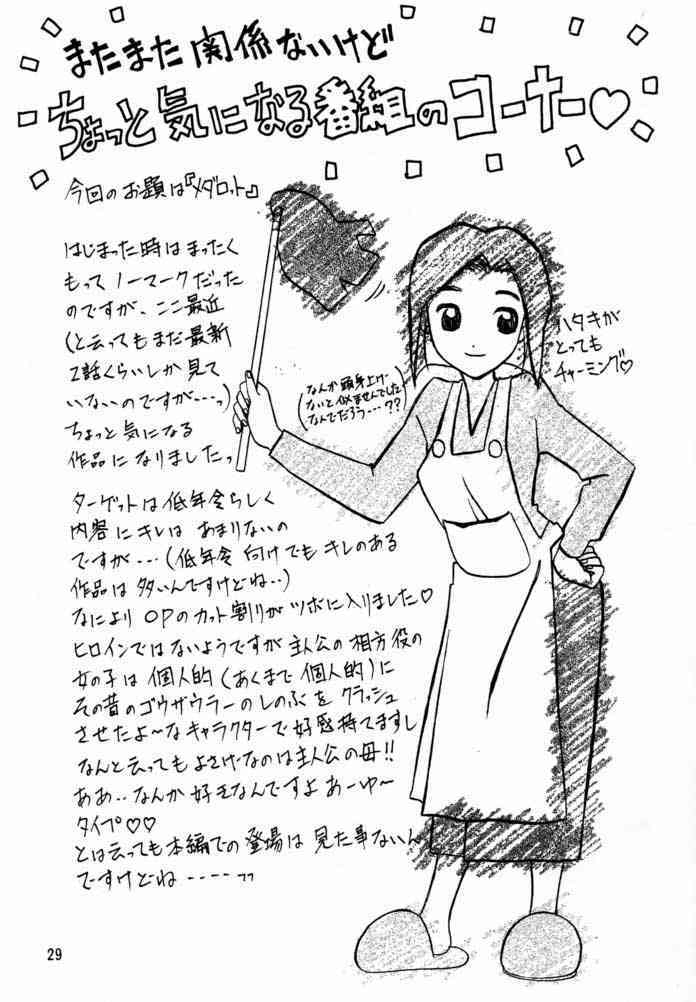 またまた関係ないけど
ちょっと気になる番組のコーナー♡
今回のお題は『メダロット』
はじまった時はまったく
もってノーマークだった
のですが、ここ最近
(と云ってもまだ最新
2話くらいしか見て
いないのですが---っ)
ちょっと気になる
作品になりましたっ
ターゲットは低年令らしく
内容にキレはあまりないの
ですが---(低年令向けでもキレのある
作品は多いんですけどね‥)
なにより OPのカット割りがツボに入りました♡
ヒロインではないようですが主人公の相方役の
女の子は個人的(あくまで個人的)に
その昔のゴウザウラーのしのぶをクラッシュ
させたよ〜なキャラクターで好感持てますし
なんと云ってもよさげ-なのは主人公の母!!
ああ‥なんか好きなんですよあーゆ〜
タイプ♡♡
とは云っても本編での登場は見た事ないん
ですけどね----
(なんか頭身上げ-
ないと似ませんでした
なんでだろう---??)
ハタキが
とっても
チャーミング♡
29